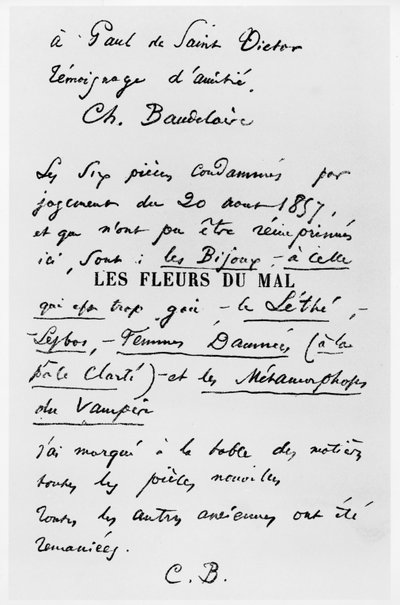 à Paul de Saint Victor
témoignage d'amitié.
Ch. Baudelaire
Les six pièces condamnées par
jugement du 20 aout 1857,
et qui n'ont pu être réimprimées
ici, sont : les Bijoux, - à celle
LES FLEURS DU MAL
qui est trop gaie - le Léthé, -
- Lesbos, - Femmes Damnées (à la
pâle Clarté) - et les Métamorphoses
du Vampire
j'ai marqué à la table des matières
toutes les pièces nouvelles
toutes les autres anciennes ont été
remaniées.
C. B.